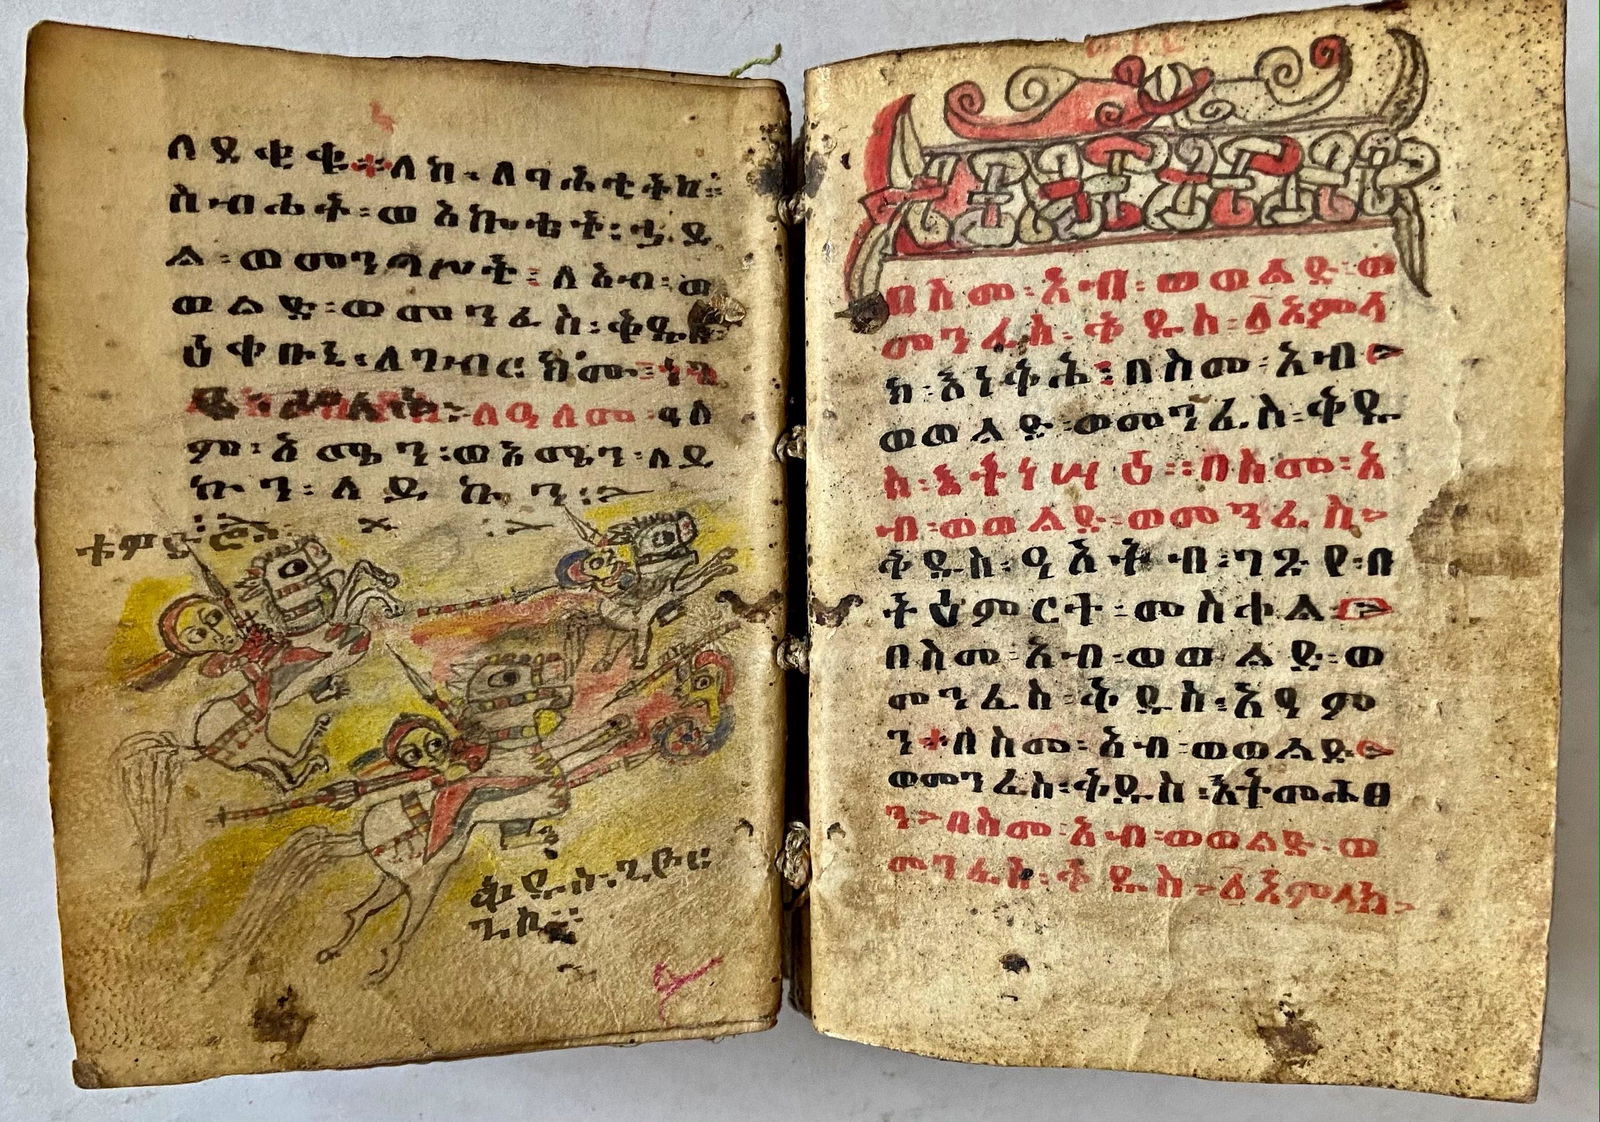 ለደቂቁ ። ለከ ፡ ለባሕቲትከ ፡
ስብሐት ፡ ወአኰቴት ፡ ኃይ
ል ፡ ወመንግሦት ፡ ለአብ ፡ ወ
ወልድ ፡ ወመንፈስ ፡ ቅዱስ
ዕቀቡኒ ፡ ለገብርክሙ ፡
ለዓለመ ፡ ዓለ
ም ፡ አሜን ፡ ወአሜን ፡ ለይ
ኩን ፡ ለይኩን ፡
ቅዱስ ፡ ጊዮር
ጊስ ።
በስመ ፡ አብ ፡ ወወልድ ፡ ወ
መንፈስ ፡ ቅዱስ ፡ ፩አምላ
ክ ፡ እነቅሕ ፡ በስመ ፡ አብ
ወወልድ ፡ ወመንፈስ ፡ ቅዱ
ስ ፡ እትነሣዕ ፡ በስመ ፡ አ
ብ ፡ ወወልድ ፡ ወመንፈስ
ቅዱስ ፡ ዓእትብ ፡ ገጽየ ፡ በ
ትዕምርት ፡ መስቀል
በስመ ፡ አብ ፡ ወወልድ ፡ ወ
መንፈስ ፡ ቅዱስ ፡ አዓም
ን ። በስመ ፡ አብ ፡ ወወልድ
ወመንፈስ ፡ ቅዱስ ፡ እትመሐፀ
ን ፡ በስመ ፡ አብ ፡ ወወልድ ፡ ወ
መንፈስ ፡ ቅዱስ ፡ ፩አምላክ